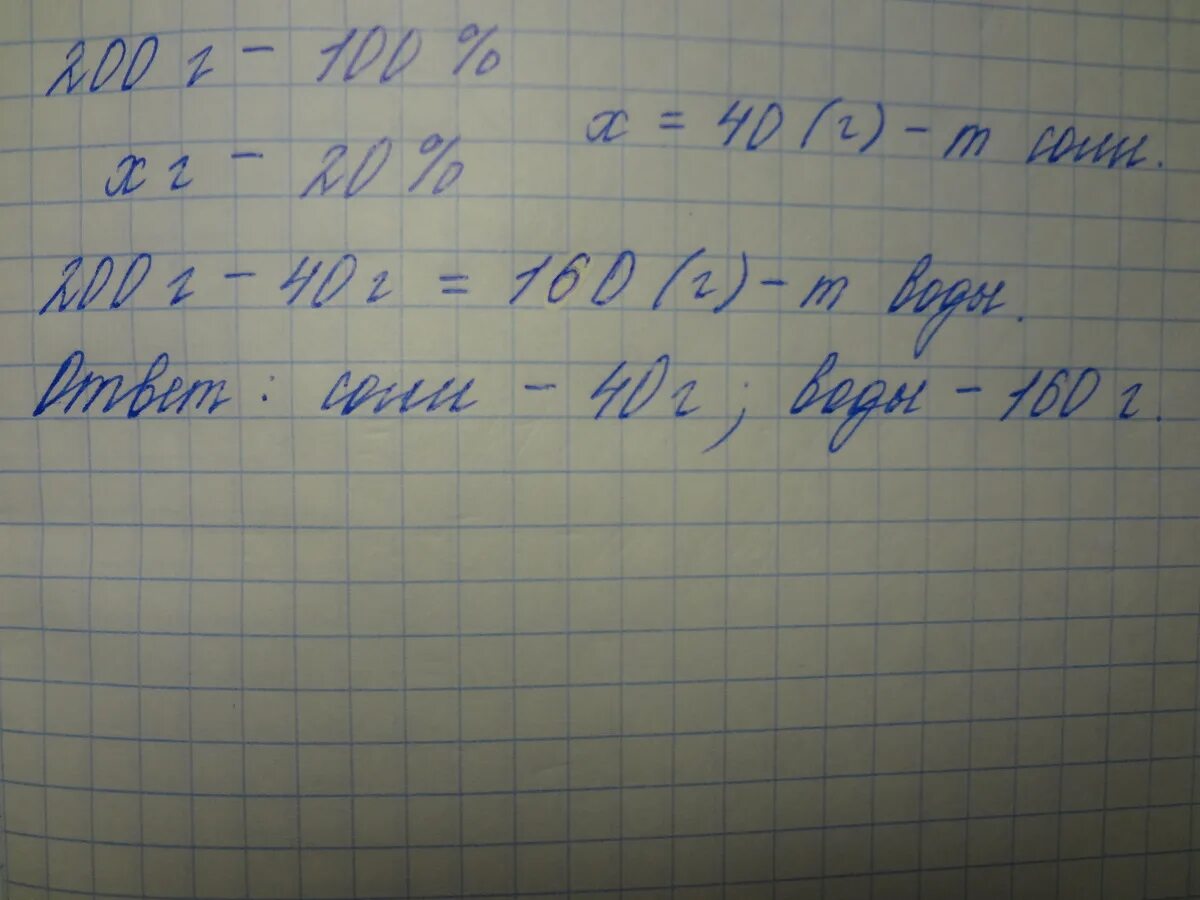 200 г - 100 %
х г - 20 %
х = 40 (г) - m соли.
200 г - 40 г = 160 (г) - m воды.
Ответ: соли - 40 г; воды - 160 г.